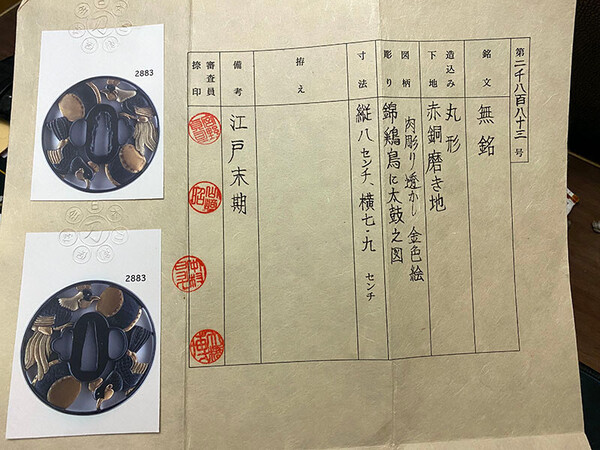 第二千八百八十三号
銘文
無銘
造込み
下地
丸形
赤銅磨き地
図柄
彫り
肉彫り透かし 金色絵
錦鶏鳥に太鼓之図
寸法
縦八センチ、横七・九センチ
拵え
備考
江戸末期
審査員
捺印
2883
2883